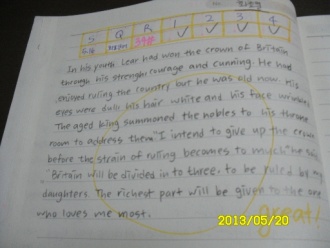 S Q R 1 2 3 4
In his youth Lear had won the crown of Britain
through his strength courage and cunning. He had
enjoyed ruling the country but he was old now. His
eyes were dull his hair white and his face wrinkled
The aged king summoned the nobles to his throne
room to address them. "I intend to give up the crown
before the strain of ruling becomes to much" he said
"Britain will be divided in to three. to be ruled by my
daughters. The richest part will be given to the one
who loves me most.
great!
2013/05/20